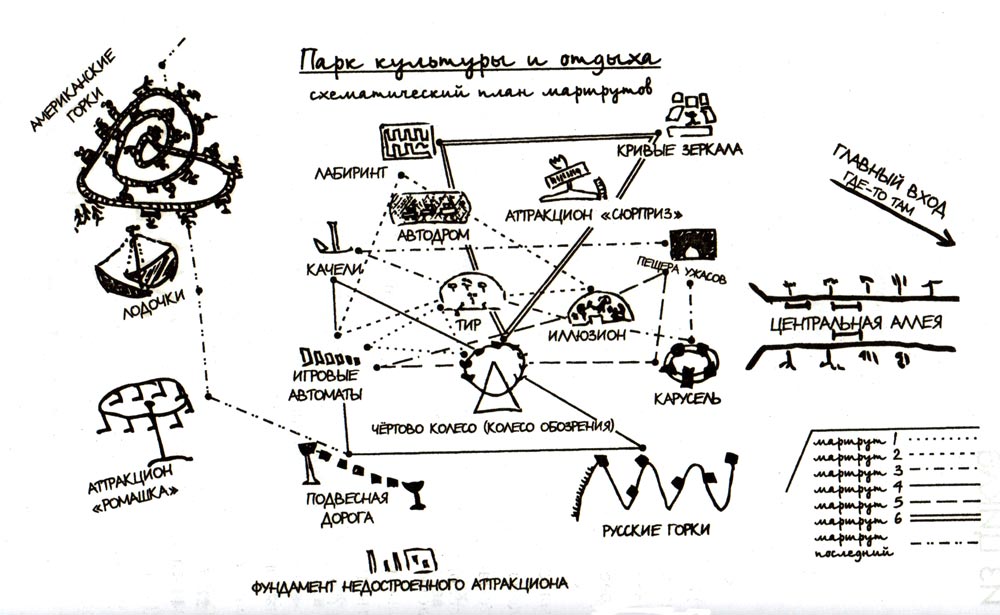 Парк культуры и отдыха
схематический план маршрутов
АМЕРИКАНСКИЕ
ГОРКИ
ЛАБИРИНТ
КРИВЫЕ ЗЕРКАЛА
АТТРАКЦИОН «СЮРПРИЗ»
АВТОДРОМ
ГЛАВНЫЙ ВХОД
ГДЕ-ТО ТАМ
КАЧЕЛИ
ПЕЩЕРА УЖАСОВ
ЛОДОЧКИ
ТИР
ИЛЛЮЗИОН
ЦЕНТРАЛЬНАЯ АЛЛЕЯ
ИГРОВЫЕ
АВТОМАТЫ
КАРУСЕЛЬ
ЧЁРТОВО КОЛЕСО (КОЛЕСО ОБОЗРЕНИЯ)
АТТРАКЦИОН
«РОМАШКА»
ПОДВЕСНАЯ
ДОРОГА
РУССКИЕ ГОРКИ
ФУНДАМЕНТ НЕДОСТРОЕННОГО АТТРАКЦИОНА
маршрут 1
маршрут 2
маршрут 3
маршрут 4
маршрут 5
маршрут 6
маршрут
последний